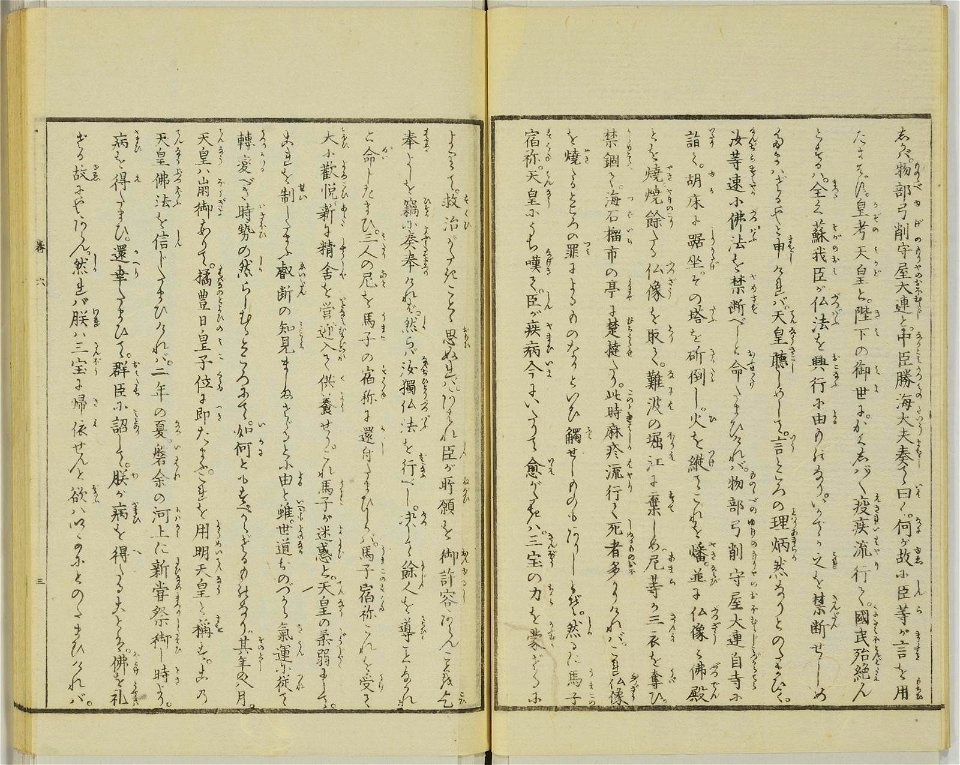 物部弓削守屋大連と中臣勝海大夫奏して曰く。何が故に臣等が言を用
皇考天皇と。陛下の御世に 疫疾流行して。國民殆絶なん
とするハ。全く蘇我臣が仏法を興行に由ものなり。いかでか之を禁断せしめ
たまハざるやと申けれバ。天皇聴しめして。言ところの理炳然なりとのたまひて。
汝等速に佛法を禁断べしと命たまひけれバ。物部弓削守屋大連自寺に
詣て。胡床に踞坐。その塔を斫倒し。火を縦てこれを燔。並に仏像と佛殿
とを焼。焼餘たる仏像を取て。難波の堀江に棄しめ。尼等が三衣を奪ひ。
禁錮て。海石榴市の亭に楚撻たり。此時麻疹流行て死者多かりけれバ。これ仏像
を焼るところの罪によるものなりといひ觸せしものもありしとぞ。然るに馬子
宿祢天皇にうち嘆て。臣が疾病今にいたりて愈がたきハ。三宝の力を蒙ざるに
よりて。救治がたきことと思ぬれバ。あはれ臣が所願を御許容あらんことを乞
奉るよしを竊に奏奉けれバ。然らバ汝獨仏法を行べし。余人を導ことなかれ
と命したまひ。三人の尼を馬子の宿祢に還付たまひしかバ。馬子宿祢これを受て
大に歡悦新に精舎を営迎入て供養せり。これ馬子が迷惑と。天皇の柔弱まして。
これを制したまふ叡断の知見ましまさざるとに由と雖。世道おのづから氣運に従て
轉変べき時勢の然らしむるところにて。如何ともすべからざるものなり。其年秋八月。
天皇ハ崩御ありて。橘豊日皇子位に即たまふ。これを用明天皇と称す。この
天皇佛法を信じたまひけれバ。二年の夏。磐余の河上に新嘗祭御し時より。
病を得たまひ。還幸たまひて。群臣に詔して。朕が病を得たること 佛を礼
ざる故にやあらん。然れバ朕ハ三宝に帰依せんと欲ハいかにとのたまひけれバ。
巻六
三